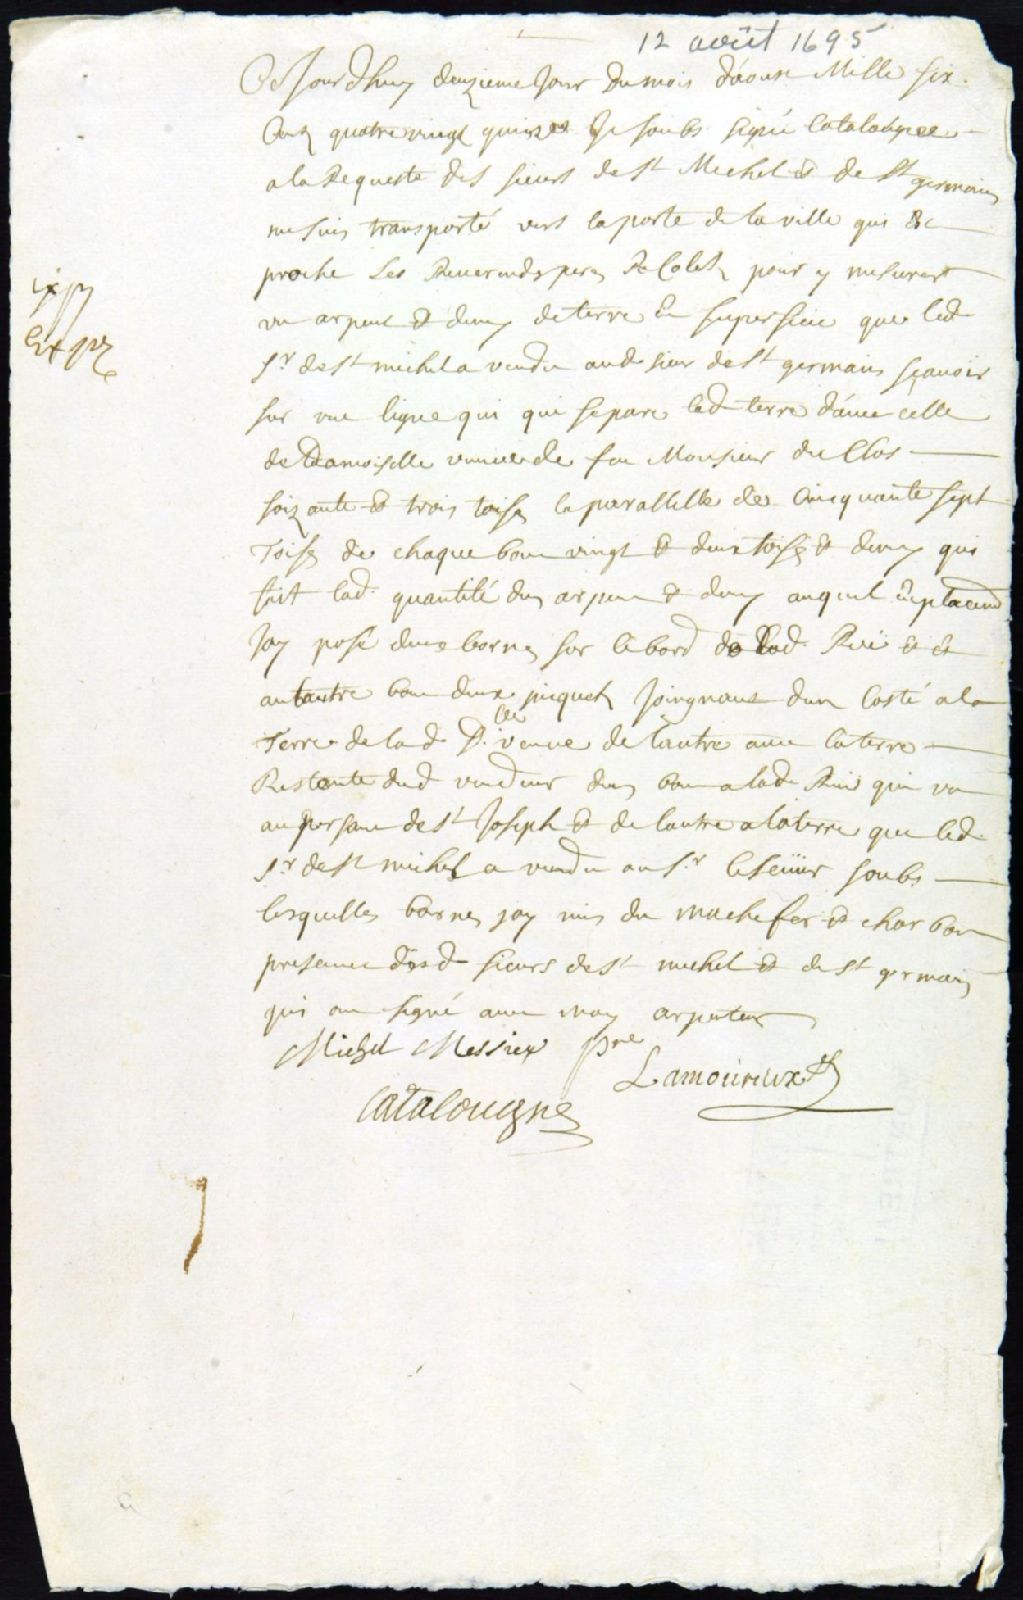 12 août 1695
Ce Jourdhuy douzieme Jour du mois d'aoust Mille six
Cent quatre vingt quinze Je soubs signé Catalougne
a la Requeste des sieurs de St Michel & de St germain
me suis transporté vers la porte de la ville qui est
proche Les Reverends peres Recolets pour y mesurer
un arpent & demy de terre en superficie que led
Sr de St michel a vendu aud sieur de St germain sçavoir
sur une ligne qui qui separe lad terre d'avec celle
de Damoiselle veuve de feu Monsieur du Clos
soixante & trois toises la parallelle de Cinquante sept
Toises de chaque bout vingt & deux toises & demy qui
fait lad. quantité dun arpent & demy auquel emplacement
Jay posé deux bornes sur le bord de lad. Rue & et
au lautre bout deux picquets Joignant dun Costé a la
Terre de la d. Dlle veuve de lautre avec la terre
Restante dud vendeur dun bout a lad Rue qui va
au persane de St Joseph & de lautre a la terre que led.
Sr de St michel a vendu au Sr soubs
lesquelles bornes jay mis du machefer & charbon
presence desd sieurs de St michel & de St germain
qui ont signé avec moy arpenteur
Michel Messier
Lamoureux
Catalougne